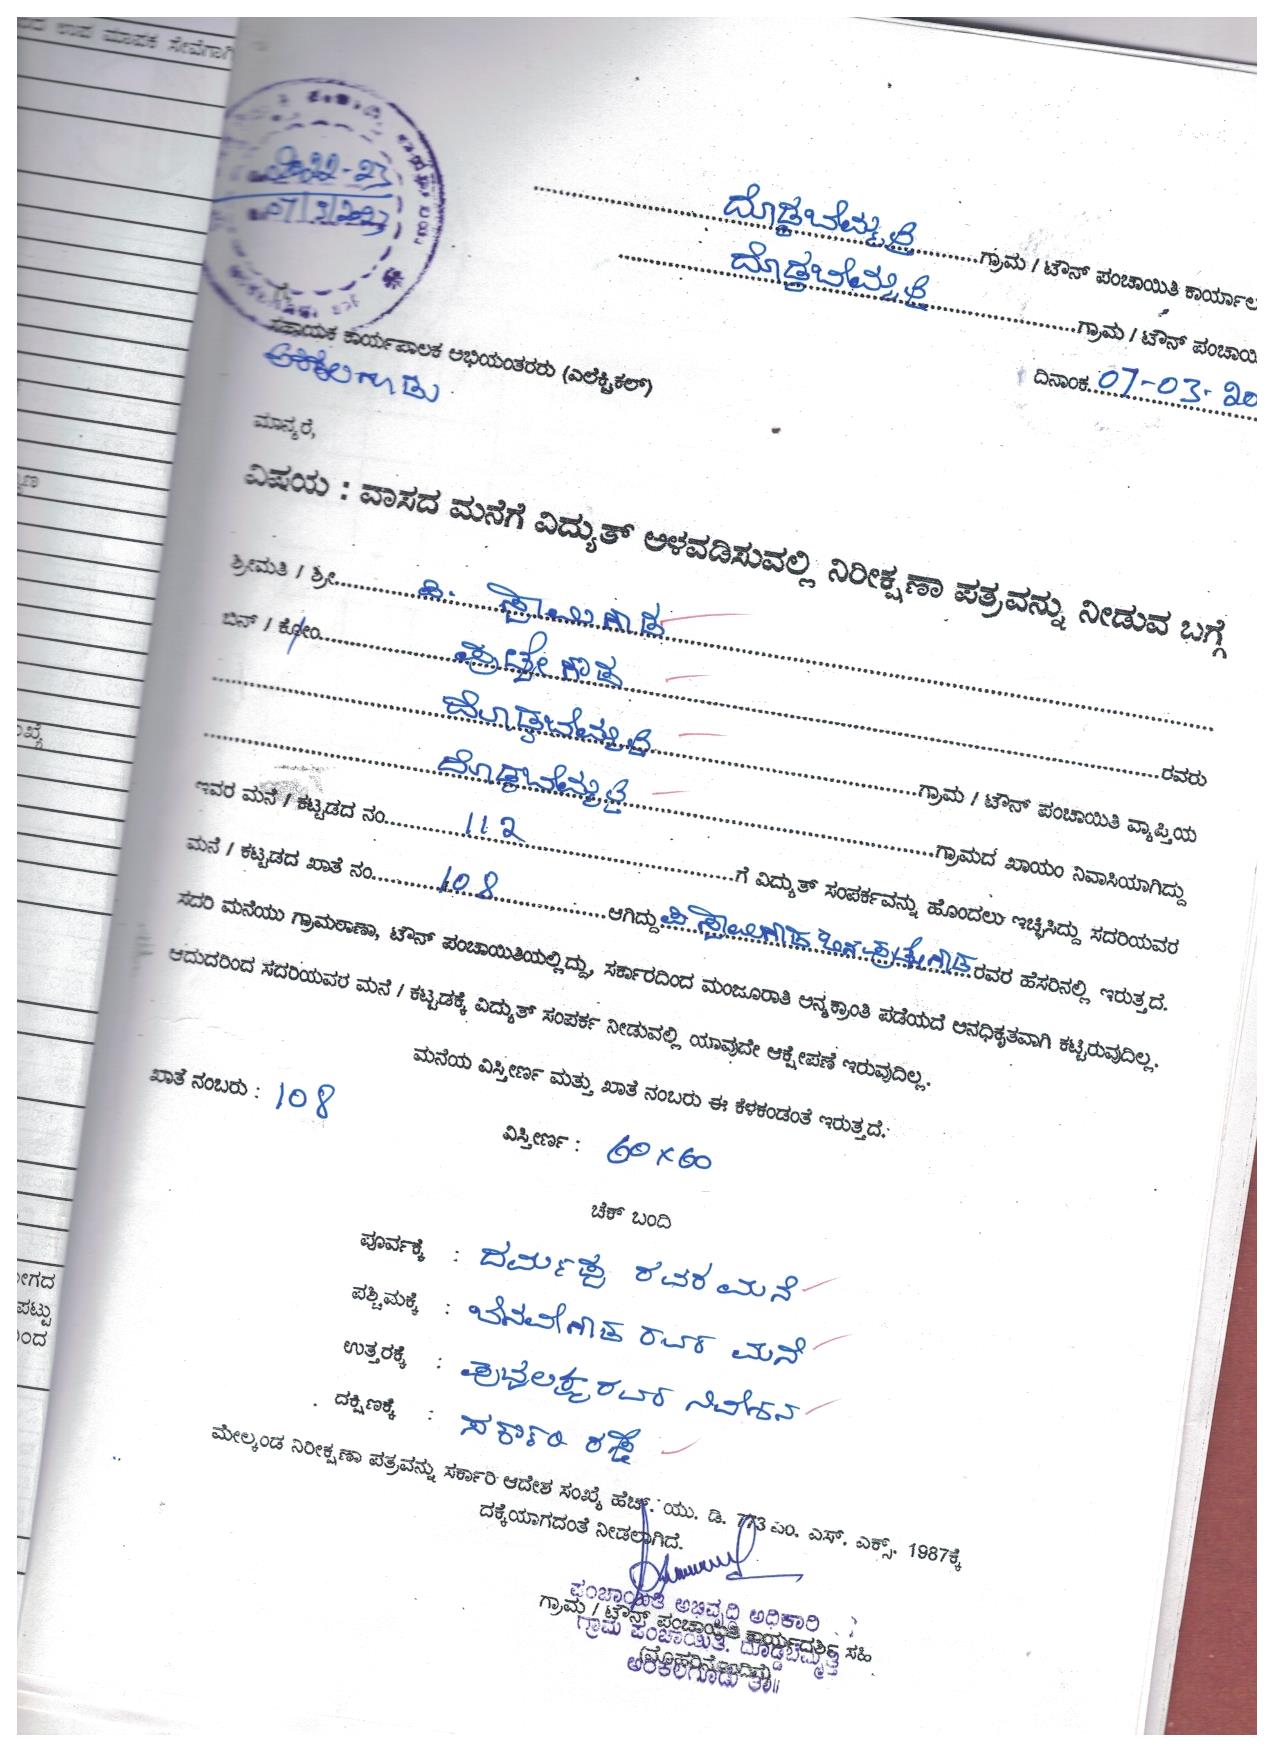 ಉಪ ಮಾಪಕ ಸೇವೆಗಾಗಿ
2022-23
07/3/2023
ದೊಡ್ಡಬೆಮ್ಮತ್ತಿ ಗ್ರಾಮ / ಟೌನ್ ಪಂಚಾಯಿತಿ ಕಾರ್ಯಾಲ
ದೊಡ್ಡಬೆಮ್ಮತ್ತಿ ಗ್ರಾಮ / ಟೌನ್ ಪಂಚಾಯಿ
ದಿನಾಂಕ. 07-03-20
ಸಹಾಯಕ ಕಾರ್ಯಪಾಲಕ ಅಭಿಯಂತರರು (ಎಲೆಕ್ಟ್ರಿಕಲ್)
ಅರಕಲಗೂಡು
ಮಾನ್ಯರೆ,
ವಿಷಯ : ವಾಸದ ಮನೆಗೆ ವಿದ್ಯುತ್ ಅಳವಡಿಸುವಲ್ಲಿ ನಿರೀಕ್ಷಣಾ ಪತ್ರವನ್ನು ನೀಡುವ ಬಗ್ಗೆ
ಶ್ರೀಮತಿ / ಶ್ರೀ ಪಿ. ಸ್ವಾಮಿಗೌಡ
ಬಿನ್ / ಕೋಂ ಪುಟ್ಟೇಗೌಡ ರವರು
ದೊಡ್ಡಬೆಮ್ಮತ್ತಿ ಗ್ರಾಮ / ಟೌನ್ ಪಂಚಾಯಿತಿ ವ್ಯಾಪ್ತಿಯ
ದೊಡ್ಡಬೆಮ್ಮತ್ತಿ ಗ್ರಾಮದ ಖಾಯಂ ನಿವಾಸಿಯಾಗಿದ್ದು
ಇವರ ಮನೆ / ಕಟ್ಟಡದ ನಂ. 112 ಗೆ ವಿದ್ಯುತ್ ಸಂಪರ್ಕವನ್ನು ಹೊಂದಲು ಇಚ್ಛಿಸಿದ್ದು ಸದರಿಯವರ
ಮನೆ / ಕಟ್ಟಡದ ಖಾತೆ ನಂ. 108 ಆಗಿದ್ದು ಪಿ ಸ್ವಾಮಿಗೌಡ ಬಿನ್ ಪುಟ್ಟೇಗೌಡ ರವರ ಹೆಸರಿನಲ್ಲಿ ಇರುತ್ತದೆ.
ಸದರಿ ಮನೆಯು ಗ್ರಾಮಠಾಣಾ, ಟೌನ್ ಪಂಚಾಯಿತಿಯಲ್ಲಿದ್ದು, ಸರ್ಕಾರದಿಂದ ಮಂಜೂರಾತಿ ಅನ್ಯಕ್ರಾಂತಿ ಪಡೆಯದೆ ಅನಧಿಕೃತವಾಗಿ ಕಟ್ಟಿರುವುದಿಲ್ಲ.
ಆದುದರಿಂದ ಸದರಿಯವರ ಮನೆ / ಕಟ್ಟಡಕ್ಕೆ ವಿದ್ಯುತ್ ಸಂಪರ್ಕ ನೀಡುವಲ್ಲಿ ಯಾವುದೇ ಆಕ್ಷೇಪಣೆ ಇರುವುದಿಲ್ಲ.
ಮನೆಯ ವಿಸ್ತೀರ್ಣ ಮತ್ತು ಖಾತೆ ನಂಬರು ಈ ಕೆಳಕಂಡಂತೆ ಇರುತ್ತದೆ.
ಖಾತೆ ನಂಬರು : 108
ವಿಸ್ತೀರ್ಣ : 60×60
ಚೆಕ್ ಬಂದಿ
ಪೂರ್ವಕ್ಕೆ : ದರ್ಮಪ್ಪ ರವರ ಮನೆ
ಪಶ್ಚಿಮಕ್ಕೆ : ರವರ ಮನೆ
ಉತ್ತರಕ್ಕೆ : ರವರ ನಿವೇಶನ
ದಕ್ಷಿಣಕ್ಕೆ : ಸರ್ಕಾರಿ ರಸ್ತೆ
ಮೇಲ್ಕಂಡ ನಿರೀಕ್ಷಣಾ ಪತ್ರವನ್ನು ಸರ್ಕಾರಿ ಆದೇಶ ಸಂಖ್ಯೆ ಹೆಚ್. ಯು. ಡಿ. 773 ಎಂ. ಎಸ್. ಎಕ್ಸ್. 1987ಕ್ಕೆ
ದಕ್ಕೆಯಾಗದಂತೆ ನೀಡಲಾಗಿದೆ.
ಪಂಚಾಯಿತಿ ಅಭಿವೃದ್ಧಿ ಅಧಿಕಾರಿ
ಗ್ರಾಮ / ಟೌನ್ ಪಂಚಾಯಿತಿ ಕಾರ್ಯದರ್ಶಿ ಸಹಿ
ಗ್ರಾಮ ಪಂಚಾಯಿತಿ. ದೊಡ್ಡಬೆಮ್ಮತ್ತಿ
(ಮೊಹರಿನೊಂದಿಗೆ)
ಅರಕಲಗೂಡು ತಾ||